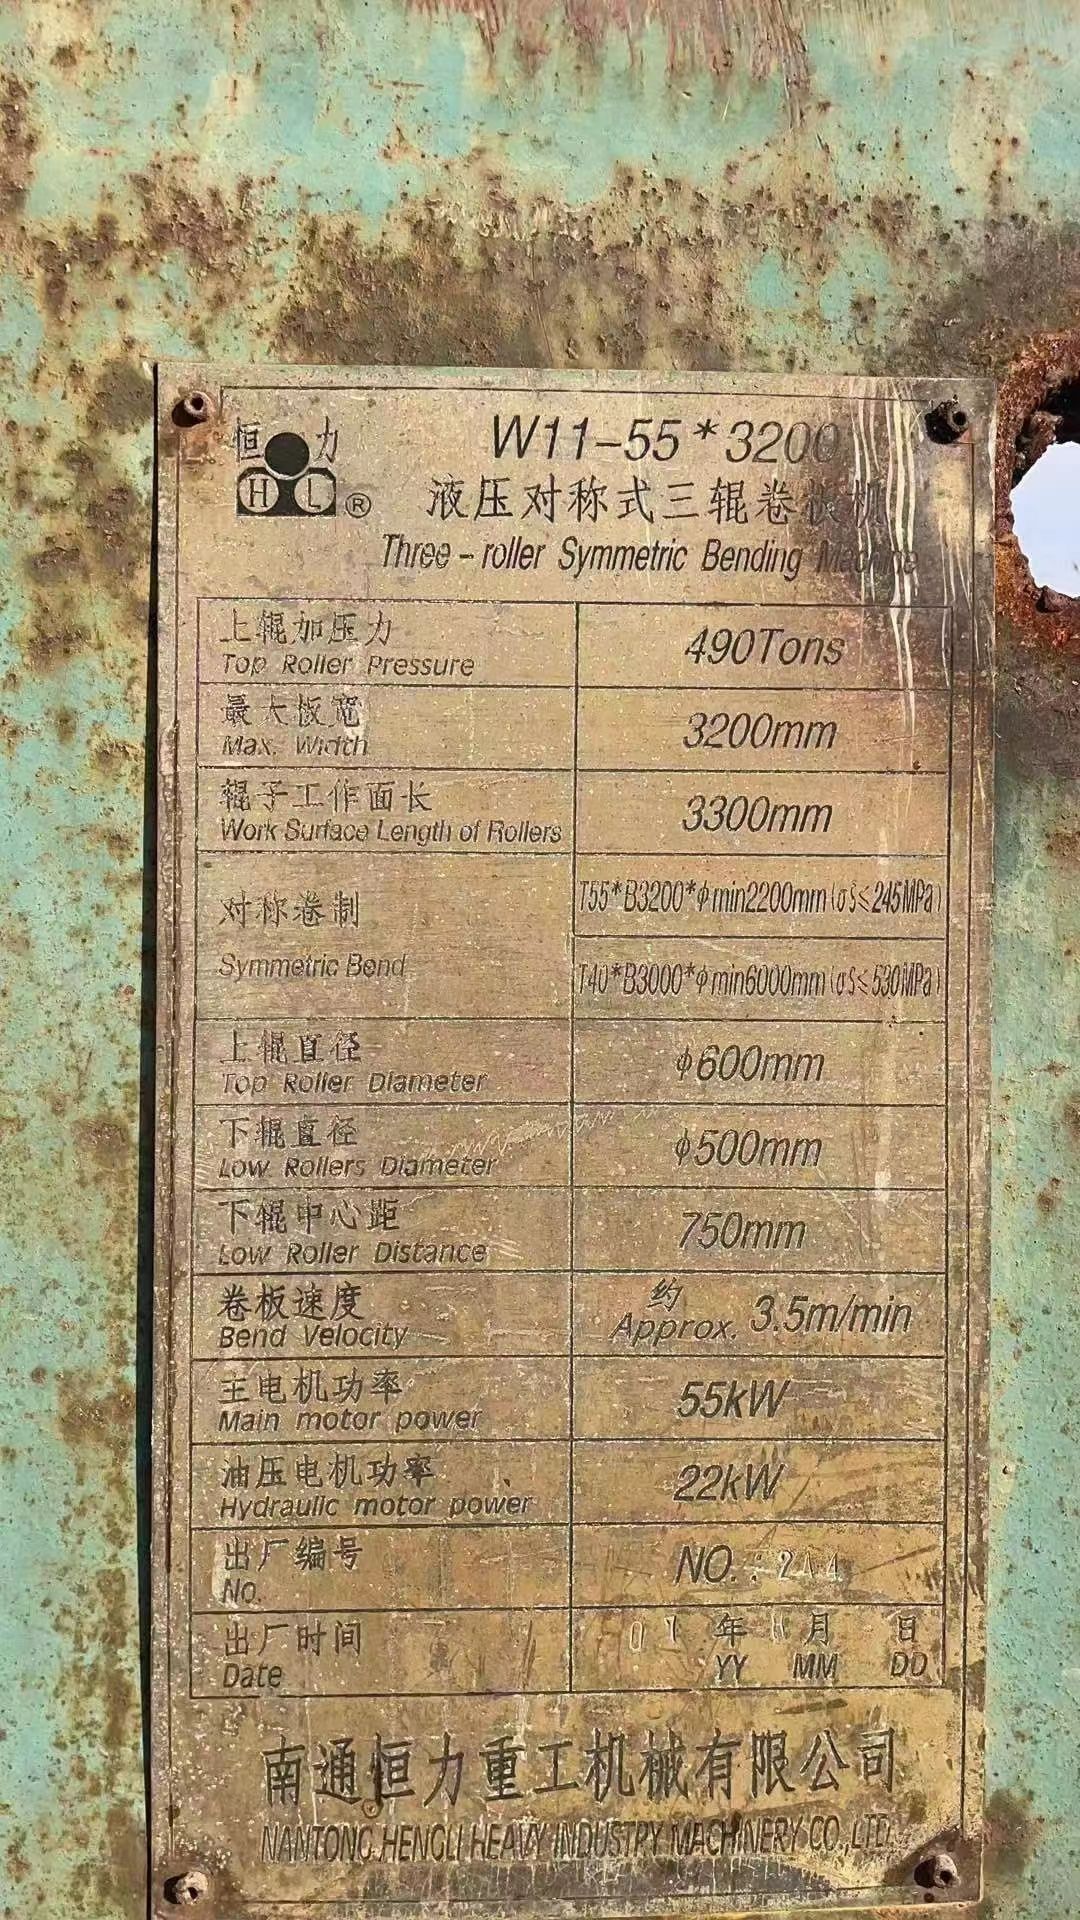 恒力
HL®
W11-55*3200
液压对称式三辊卷板机
Three-roller Symmetric Bending Machine
上辊加压力
Top Roller Pressure
490Tons
最大板宽
Max. Width
3200mm
辊子工作面长
Work Surface Length of Rollers
3300mm
对称卷制
Symmetric Bend
T55*B3200*φmin2200mm(σS≤245MPa)
T40*B3000*φmin6000mm(σS≤530MPa)
上辊直径
Top Roller Diameter
φ600mm
下辊直径
Low Rollers Diameter
φ500mm
下辊中心距
Low Roller Distance
750mm
卷板速度
Bend Velocity
约
Approx. 3.5m/min
主电机功率
Main motor power
55kW
油压电机功率
Hydraulic motor power
22kW
出厂编号
NO.
NO.:244
出厂时间
Date
07 年 月 日
YY MM DD
南通恒力重工机械有限公司
NANTONG HENGLI HEAVY INDUSTRY MACHINERY CO.,LTD.